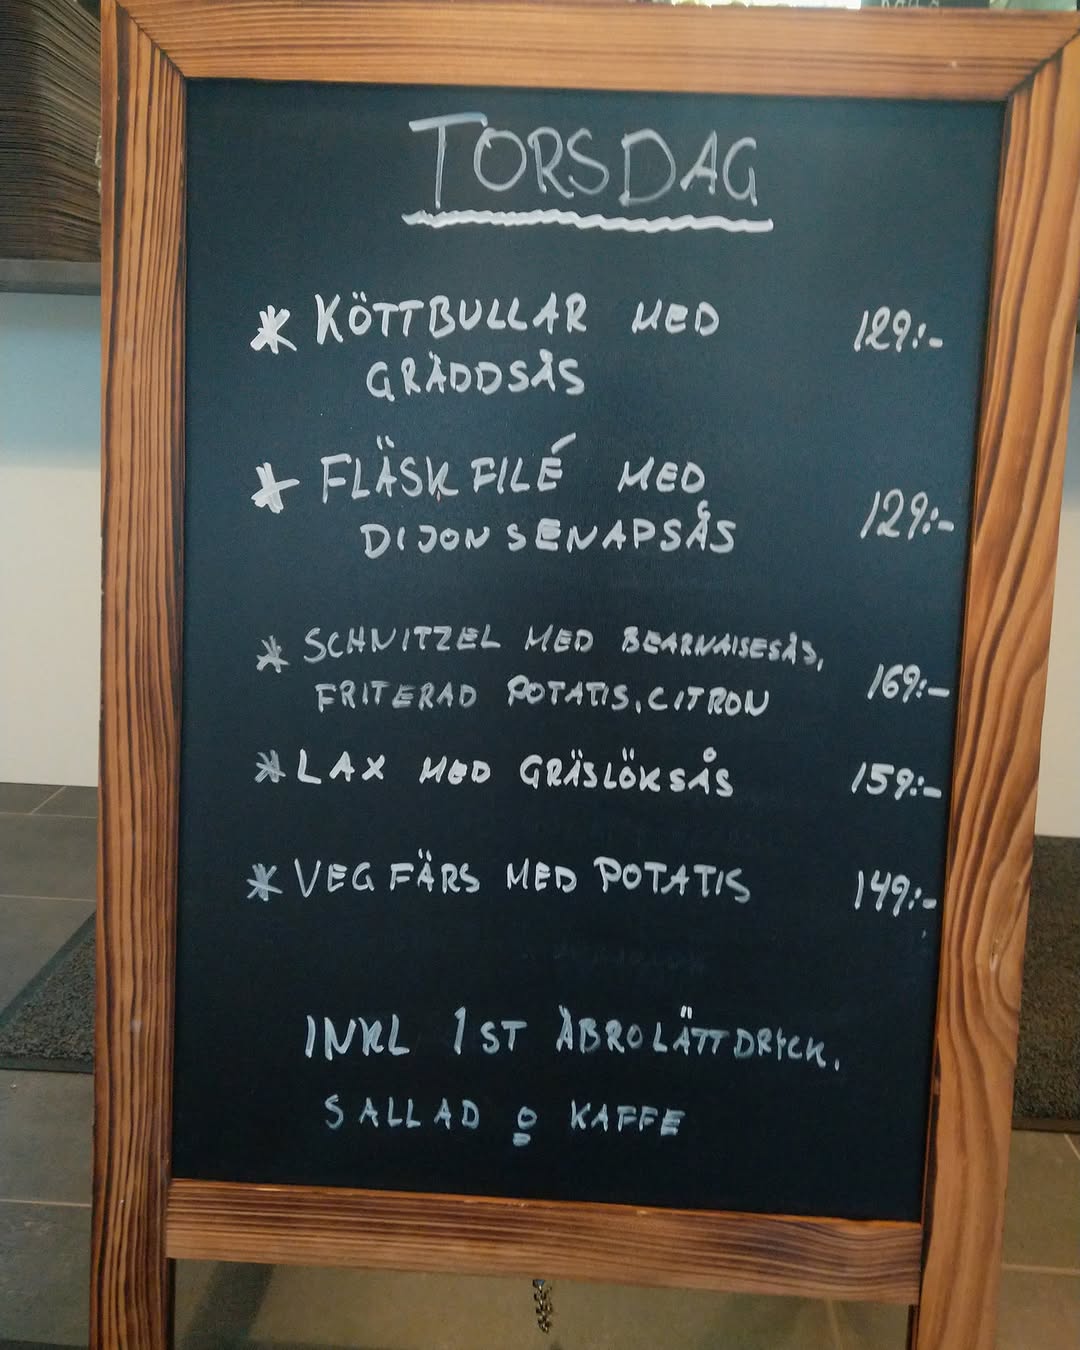 TORSDAG
* KÖTTBULLAR MED 129:-
GRÄDDSÅS
* FLÄSKFILÉ MED 129:-
DIJONSENAPSÅS
* SCHNITZEL MED BEARNAISESÅS, 169:-
FRITERAD POTATIS, CITRON
* LAX MED GRÄSLÖKSÅS 159:-
* VEGFÄRS MED POTATIS 149:-
INKL 1 ST ÅBRO LÄTTDRICK,
SALLAD o KAFFE